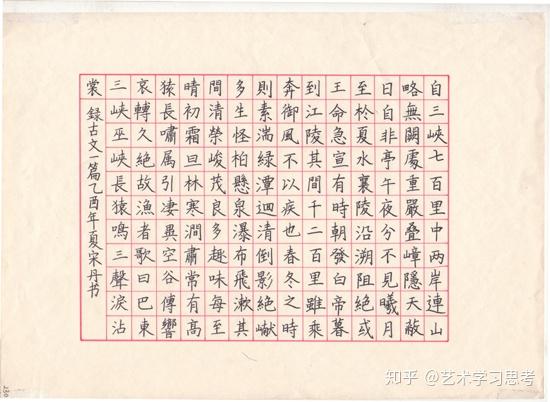 自三峽七百里中两岸連山
略無闕處重嚴叠嶂隱天蔽
日自非亭午夜分不見曦月
至於夏水襄陵沿溯阻絕或
王命急宣有時朝發白帝暮
到江陵其間千二百里雖乘
奔御風不以疾也春冬之時
則素湍綠潭迴清倒影絕巘
多生怪柏懸泉瀑布飛漱其
間清榮峻茂良多趣味每至
晴初霜旦林寒澗肅常有高
猿長嘯属引凄異空谷傳響
哀轉久絕故漁者歌曰巴東
三峽巫峽長猿鳴三聲淚沾
裳 録古文一篇乙酉年夏宋丹书
知乎 @艺术学习思考